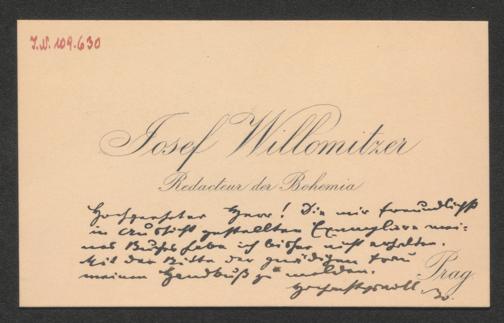 J.N. 109.630
Josef Willomitzer
Redacteur der Bohemia
Hochgeehrter Herr! Die mir freundlichst
in Aussicht gestellten Exemplare mei-
nes Buches habe ich bisher nicht erhalten.
Mit der Bitte der gnädigen Frau
meinen Handkuß zu melden.
Prag
Hochachtungsvoll